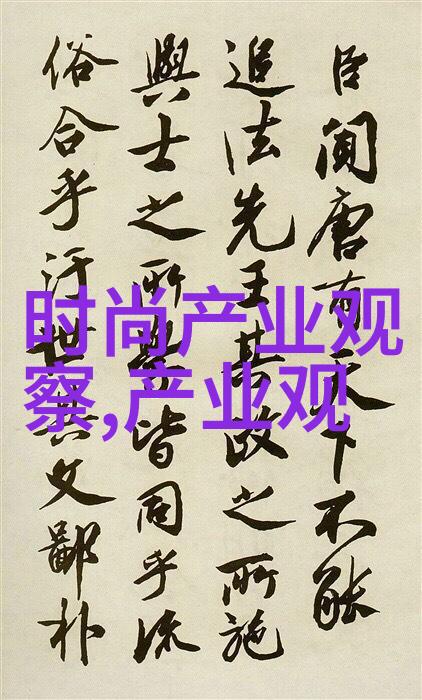 臣聞唐有天下不能
追法先王其政之所施
與士之所學皆同乎流
俗合乎汙世其文鄙朴
时尚产业观
察,产业观